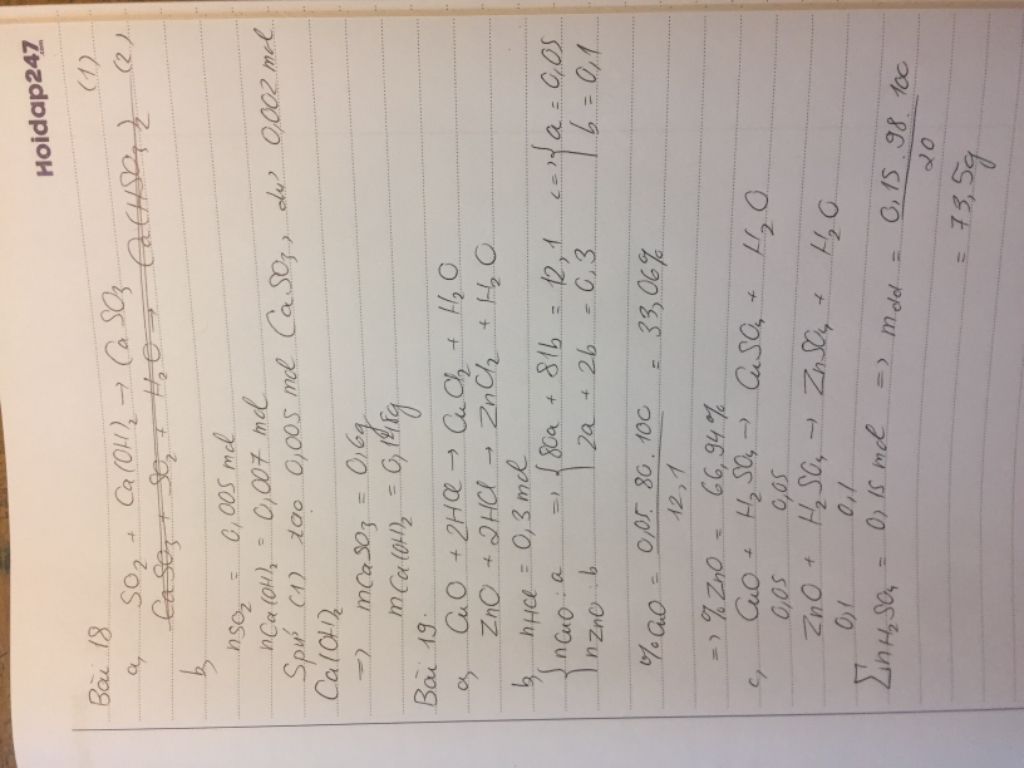 Hoidap247
Bài 18
a, SO2 + Ca(OH)2 → CaSO3 (1)
CaSO3 + SO2 + H2O → Ca(HSO3)2 (2)
b,
nSO2 = 0,005 mol
nCa(OH)2 = 0,007 mol
Spứ (1) tạo 0,005 mol CaSO3, dư 0,002 mol
Ca(OH)2
=> mCaSO3 = 0,6g
mCa(OH)2 = 0,148g
Bài 19.
a, CuO + 2HCl → CuCl2 + H2O
ZnO + 2HCl → ZnCl2 + H2O
b, nHCl = 0,3 mol
{nCuO: a => {80a + 81b = 12,1 <=> {a = 0,05
nZnO: b 2a + 2b = 0,3 b = 0,1
%CuO = 0,05. 80. 100 = 33,06%
12,1
=> %ZnO = 66,94%
c, CuO + H2SO4 → CuSO4 + H2O
0,05 0,05
ZnO + H2SO4 → ZnSO4 + H2O
0,1 0,1
∑nH2SO4 = 0,15 mol => mdd = 0,15. 98. 100
20
= 73,5g